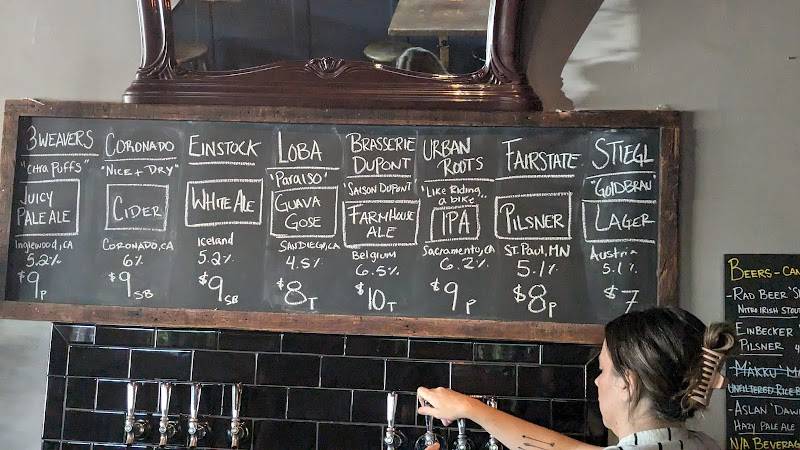 3 WEAVERS
"CITRA PUFFS"
JUICY
PALE ALE
Inglewood, CA
5.2%
$9 P
CORONADO
"NICE + DRY"
CIDER
CORONADO, CA
6%
$9 SB
EINSTOCK
WHITE ALE
Iceland
5.2%
$9 SB
LOBA
"PARAISO"
GUAVA
GOSE
SAN DIEGO, CA
4.5%
$8 T
BRASSERIE
DUPONT
"SAISON DUPONT"
FARMHOUSE
ALE
Belgium
6.5%
$10 T
URBAN
ROOTS
"LIKE RIDING..
a bike"
IPA
Sacramento, CA
6.2%
$9 P
FAIRSTATE
PILSNER
ST. PAUL, MN
5.1%
$8 P
STIEGL
"GOLDBRAU"
LAGER
Austria
5.1%
$7
BEERS - CAN
- RAD BEER
NITRO IRISH STOUT
EINBECKER
PILSNER
- MAKKU
UNFILTERED RICE
- ASLAN
HAZY PALE
N/A BEVERAG